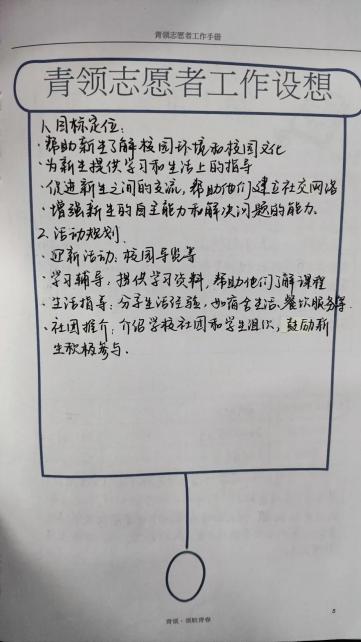 青领志愿者工作手册
青领志愿者工作设想
1、目标定位：
·帮助新生了解校园环境和校园文化
·为新生提供学习和生活上的指导
·促进新生之间的交流，帮助他们建立社交网络
·增强新生的自主能力和解决问题的能力。
2、活动规划．
·迎新活动：校园导览等
·学习辅导，提供学习资料，帮助他们了解课程
·生活指导：分享生活经验，如宿舍生活、餐饮服务等
·社团推介：介绍学校社团和学生组织，鼓励新
生积极参与．
青领·领航青春
5